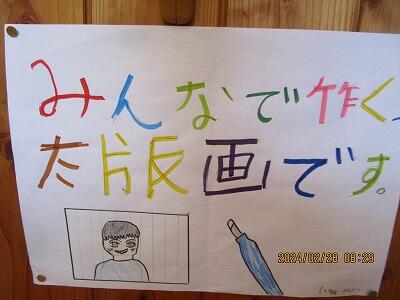 みんなで作く、
大版画です。
2024/02/28 08:29